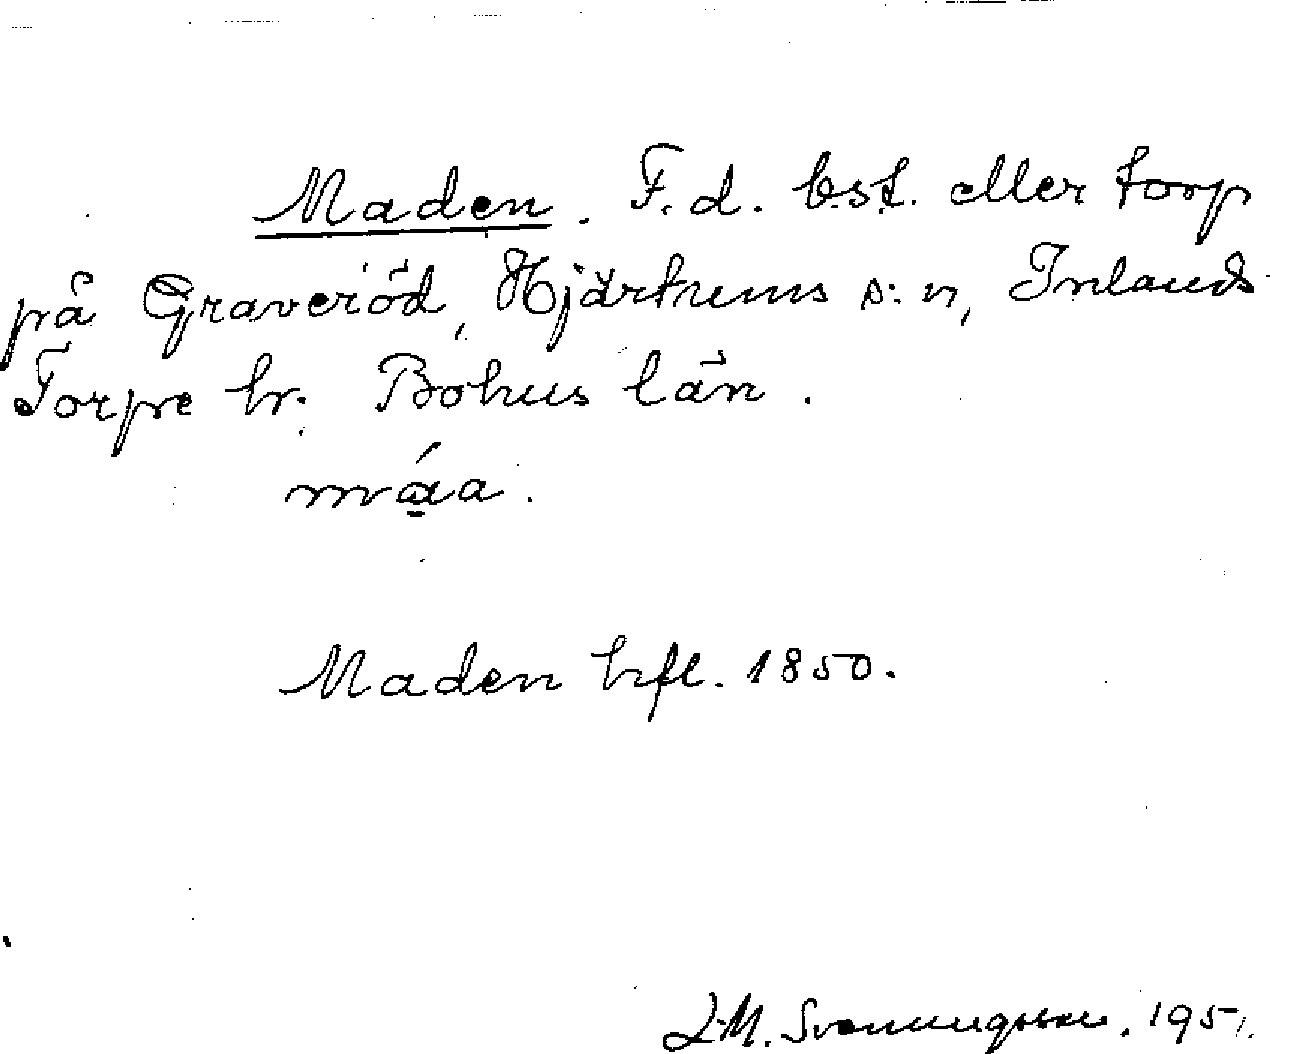 Maden. F.d. bst. eller torp
på Graveröd, Hjärtums s:n, Inlands
Torpe hr. Bohus län.
måa.
Maden hfl. 1850.
J.M. Svenningsson. 1951.